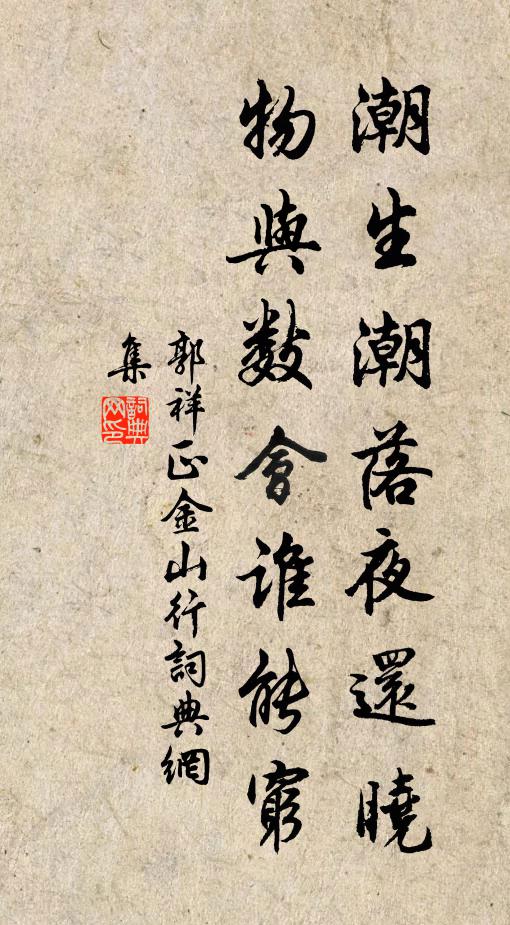 潮生潮落夜還曉
物與數會誰能窮
郭祥正金山行詞典網
集
詞典
网印